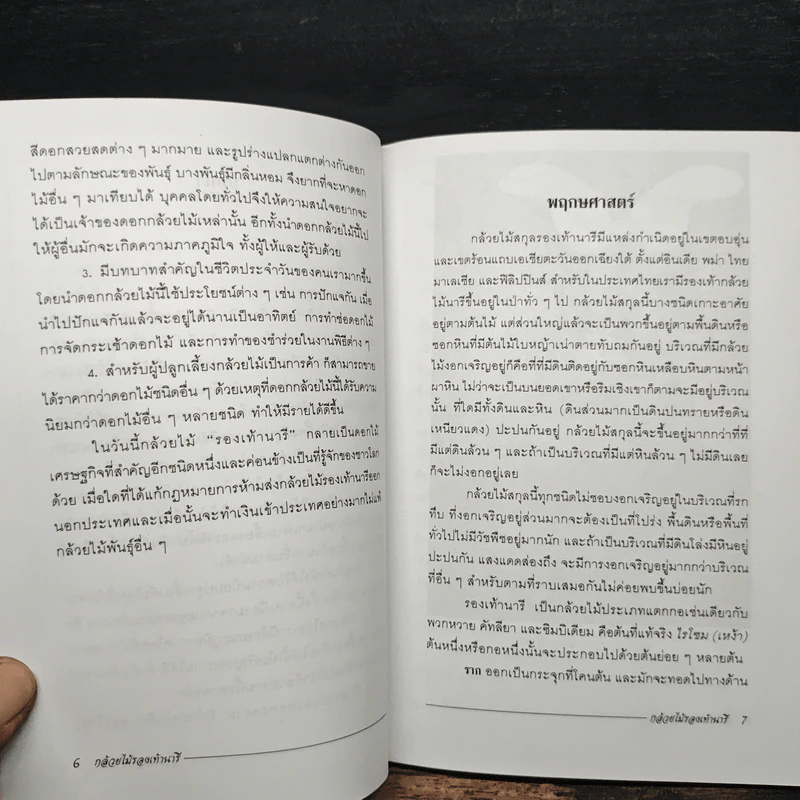 สีดอกสวยสดต่าง ๆ มากมาย และรูปร่างแปลกแตกต่างกันออก
ไปตามลักษณะของพันธุ์ บางพันธุ์มีกลิ่นหอม จึงยากที่จะหาดอก
ไม้อื่น ๆ มาเทียบได้ บุคคลโดยทั่วไปจึงให้ความสนใจอยากจะ
ได้เป็นเจ้าของดอกกล้วยไม้เหล่านั้น อีกทั้งนำดอกกล้วยไม้นี้ไป
ให้ผู้อื่นมักจะเกิดความภาคภูมิใจ ทั้งผู้ให้และผู้รับด้วย
3. มีบทบาทสำคัญในชีวิตประจำวันของคนเรามากขึ้น
โดยนำดอกกล้วยไม้นี้ใช้ประโยชน์ต่าง ๆ เช่น การปักแจกัน เมื่อ
นำไปปักแจกันแล้วจะอยู่ได้นานเป็นอาทิตย์ การทำช่อดอกไม้
การจัดกระเช้าดอกไม้ และการทำของชำร่วยในงานพิธีต่าง ๆ
4. สำหรับผู้ปลูกเลี้ยงกล้วยไม้เป็นการค้า ก็สามารถขาย
ได้ราคากว่าดอกไม้ชนิดอื่น ๆ ด้วยเหตุที่ดอกกล้วยไม้นี้ได้รับความ
นิยมกว่าดอกไม้อื่น ๆ หลายชนิด ทำให้มีรายได้ดีขึ้น
ในวันนี้กล้วยไม้ "รองเท้านารี" กลายเป็นดอกไม้
เศรษฐกิจที่สำคัญอีกชนิดหนึ่งและค่อนข้างเป็นที่รู้จักของชาวโลก
ด้วย เมื่อใดที่ได้แก้กฎหมายการห้ามส่งกล้วยไม้รองเท้านารีออก
นอกประเทศและเมื่อนั้นจะทำเงินเข้าประเทศอย่างมากไม่แพ้
กล้วยไม้พันธุ์อื่น ๆ
6 กล้วยไม้รองเท้านารี
พฤกษศาสตร์
กล้วยไม้สกุลรองเท้านารีมีแหล่งกำเนิดอยู่ในเขตอบอุ่น
และเขตร้อนแถบเอเซียตะวันออกเฉียงใต้ ตั้งแต่อินเดีย พม่า ไทย
มาเลเซีย และฟิลิปปินส์ สำหรับในประเทศไทยเรามีรองเท้ากล้วย
ไม้นารีขึ้นอยู่ในป่าทั่ว ๆ ไป กล้วยไม้สกุลนี้บางชนิดเกาะอาศัย
อยู่ตามต้นไม้ แต่ส่วนใหญ่แล้วจะเป็นพวกขึ้นอยู่ตามพื้นดินหรือ
ซอกหินที่มีต้นไม้ใบหญ้าเน่าตายทับถมกันอยู่ บริเวณที่มีกล้วย
ไม้งอกเจริญอยู่ก็คือที่ที่มีดินติดอยู่กับซอกหินเหลือบหินตามหน้า
ผาหิน ไม่ว่าจะเป็นบนยอดเขาหรือริมเชิงเขาก็ตามจะมีอยู่บริเวณ
นั้น ที่ใดมีทั้งดินและหิน (ดินส่วนมากเป็นดินปนทรายหรือดิน
เหนียวแดง) ปะปนกันอยู่ กล้วยไม้สกุลนี้จะขึ้นอยู่มากกว่าที่ที่
มีแต่ดินล้วน ๆ และถ้าเป็นบริเวณที่มีแต่หินล้วน ๆ ไม่มีดินเลย
ก็จะไม่งอกอยู่เลย
กล้วยไม้สกุลนี้ทุกชนิดไม่ชอบงอกเจริญอยู่ในบริเวณที่รก
ทึบ ที่งอกเจริญอยู่ส่วนมากจะต้องเป็นที่โปร่ง พื้นดินหรือพื้นที่
ทั่วไปไม่มีวัชพืชอยู่มากนัก และถ้าเป็นบริเวณที่มีดินโล่งมีหินอยู่
ปะปนกัน แสงแดดส่องถึง จะมีการงอกเจริญอยู่มากกว่าบริเวณ
ที่อื่น ๆ สำหรับตามที่ราบเสมอกันไม่ค่อยพบขึ้นบ่อยนัก
รองเท้านารี เป็นกล้วยไม้ประเภทแตกกอเช่นเดียวกับ
พวกหวาย คัทลียา และซิมบิเดียม คือต้นที่แท้จริง ไรโซม (เหง้า)
ต้นหนึ่งหรือกอหนึ่งนั้นจะประกอบไปด้วยต้นย่อย ๆ หลายต้น
ราก ออกเป็นกระจุกที่โคนต้น และมักจะทอดไปทางด้าน
กล้วยไม้รองเท้านารี 7